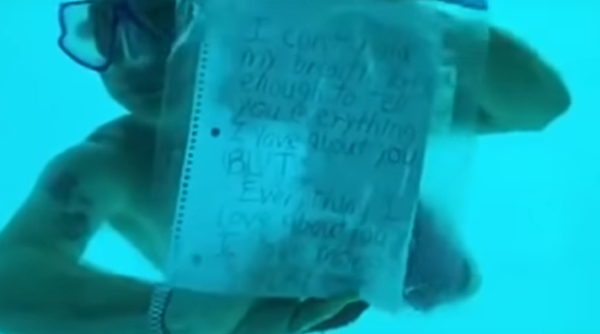 I can't hold
my breath long
enough to tell
you everything
I love about you
BUT
Everything I
Love about you
I love more